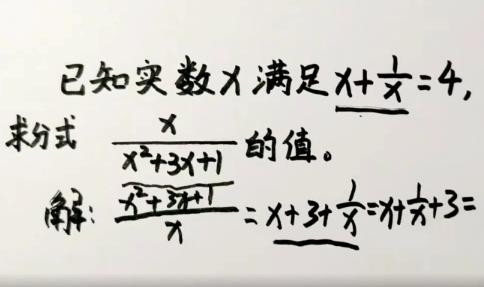 已知实数x满足x+1/x=4,
求分式 x/(x²+3x+1) 的值。
解: (x²+3x+1)/x = x+3+1/x=x+1/x+3=